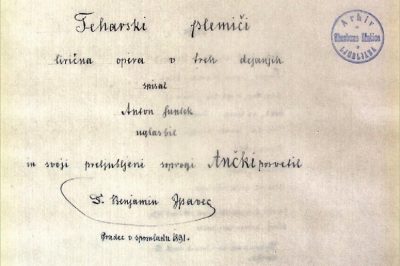 Teharski plemiči
lirična opera v treh dejanjih
spisal
Anton Funtek
uglasbil
in svoji preljubljeni soprogi Ančki posvetil
Dr. Benjamin Ipavec
Gradec v spomladi 1891.
Arhiv
Glasbene Matice